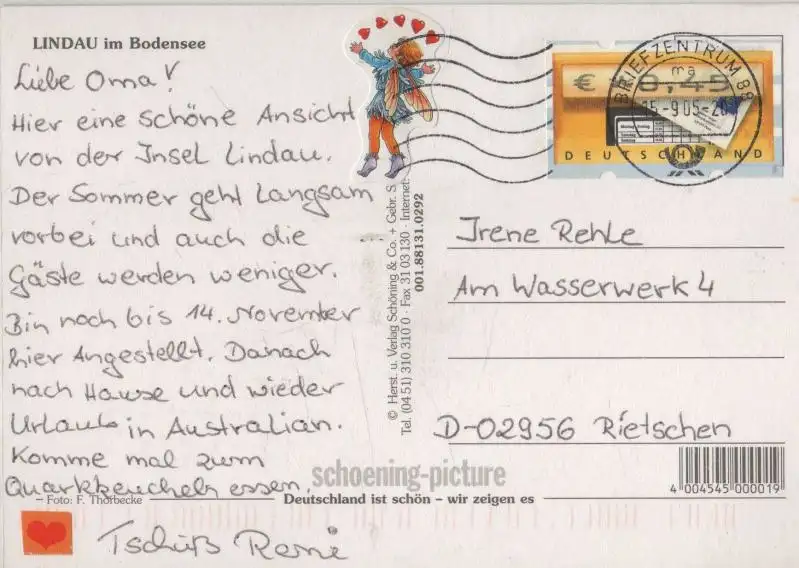 LINDAU im Bodensee
Liebe Oma!
Hier eine schöne Ansicht
von der Insel Lindau.
Der Sommer geht langsam
vorbei und auch die
Gäste werden weniger.
Bin noch bis 14. November
hier Angestellt. Danach
nach Hause und wieder
Urlaub in Australian.
Komme mal zum
Quarkkeucheln essen.
Tschüß René
– Foto: F. Thorbecke
© Herst. u. Verlag Schöning & Co. + Gebr. S
Tel. (04 51) 310 310 0 · Fax 31 03 130 · Internet:
001.88131.0292
schoening-picture
Deutschland ist schön – wir zeigen es
BRIEFZENTRUM 88
ma
15.-9.05-20
€ 0,45
DEUTSCHLAND
Irene Rehle
Am Wasserwerk 4
D-02956 Rietschen
4 004545 000019